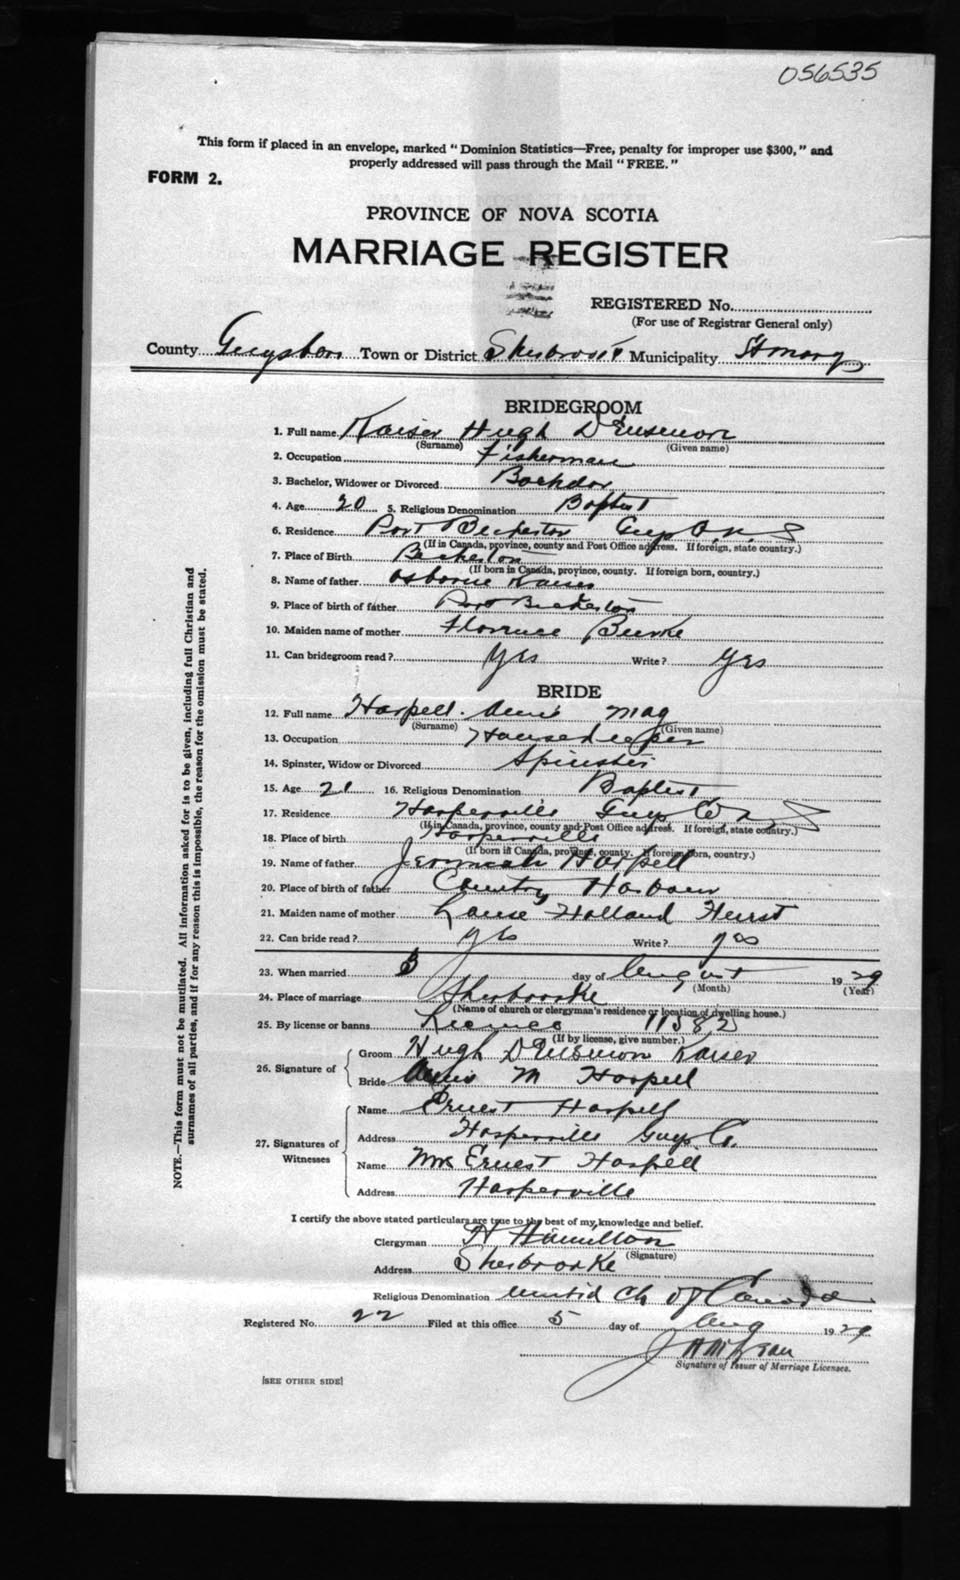 056535
This form if placed in an envelope, marked "Dominion Statistics—Free, penalty for improper use $300," and
properly addressed will pass through the Mail "FREE."
FORM 2.
PROVINCE OF NOVA SCOTIA
MARRIAGE REGISTER
REGISTERED No.
(For use of Registrar General only)
County Guysboro Town or District Sherbrooke Municipality St Marys
BRIDEGROOM
1. Full name Kaiser Hugh D
(Surname) (Given name)
2. Occupation Fisherman
3. Bachelor, Widower or Divorced Bachelor
4. Age 20 5. Religious Denomination Baptist
6. Residence Port Beckerton Guys Co. N S
(If in Canada, province, county and Post Office address. If foreign, state country.)
7. Place of Birth Beckerton
(If born in Canada, province, county. If foreign born, country.)
8. Name of father Osborne Kaiser
9. Place of birth of father Port Beckerton
10. Maiden name of mother Florence Burke
11. Can bridegroom read? Yes Write? Yes
BRIDE
12. Full name Harpell Annie May
(Surname) (Given name)
13. Occupation Housekeeper
14. Spinster, Widow or Divorced Spinster
15. Age 21 16. Religious Denomination Baptist
17. Residence Harperville Guys Co N S
(If in Canada, province, county and Post Office address. If foreign, state country.)
18. Place of birth Harperville
(If born in Canada, province, county. If foreign born, country.)
19. Name of father Jeremiah Harpell
20. Place of birth of father Country Harbour
21. Maiden name of mother Holland Hurst
22. Can bride read? yes Write? yes
23. When married 3 day of August 1929
(Month) (Year)
24. Place of marriage Sherbrooke
(Name of church or clergyman's residence or location of dwelling house.)
25. By license or banns License 11582
(If by license, give number.)
26. Signature of
Groom Hugh D Kaiser
Bride Annie M Harpell
27. Signatures of Witnesses
Name Ernest Harpell
Address Harperville Guys Co.
Name Mrs Ernest Harpell
Address Harperville
I certify the above stated particulars are true to the best of my knowledge and belief.
Clergyman H Hamilton
(Signature)
Address Sherbrooke
Religious Denomination United Ch of Canada
Registered No. 22 Filed at this office 5 day of Aug 1929
Signature of Issuer of Marriage Licenses.
[SEE OTHER SIDE]
NOTE.—This form must not be mutilated. All information asked for is to be given, including full Christian and
surnames of all parties, and if for any reason this is impossible, the reason for the omission must be stated.